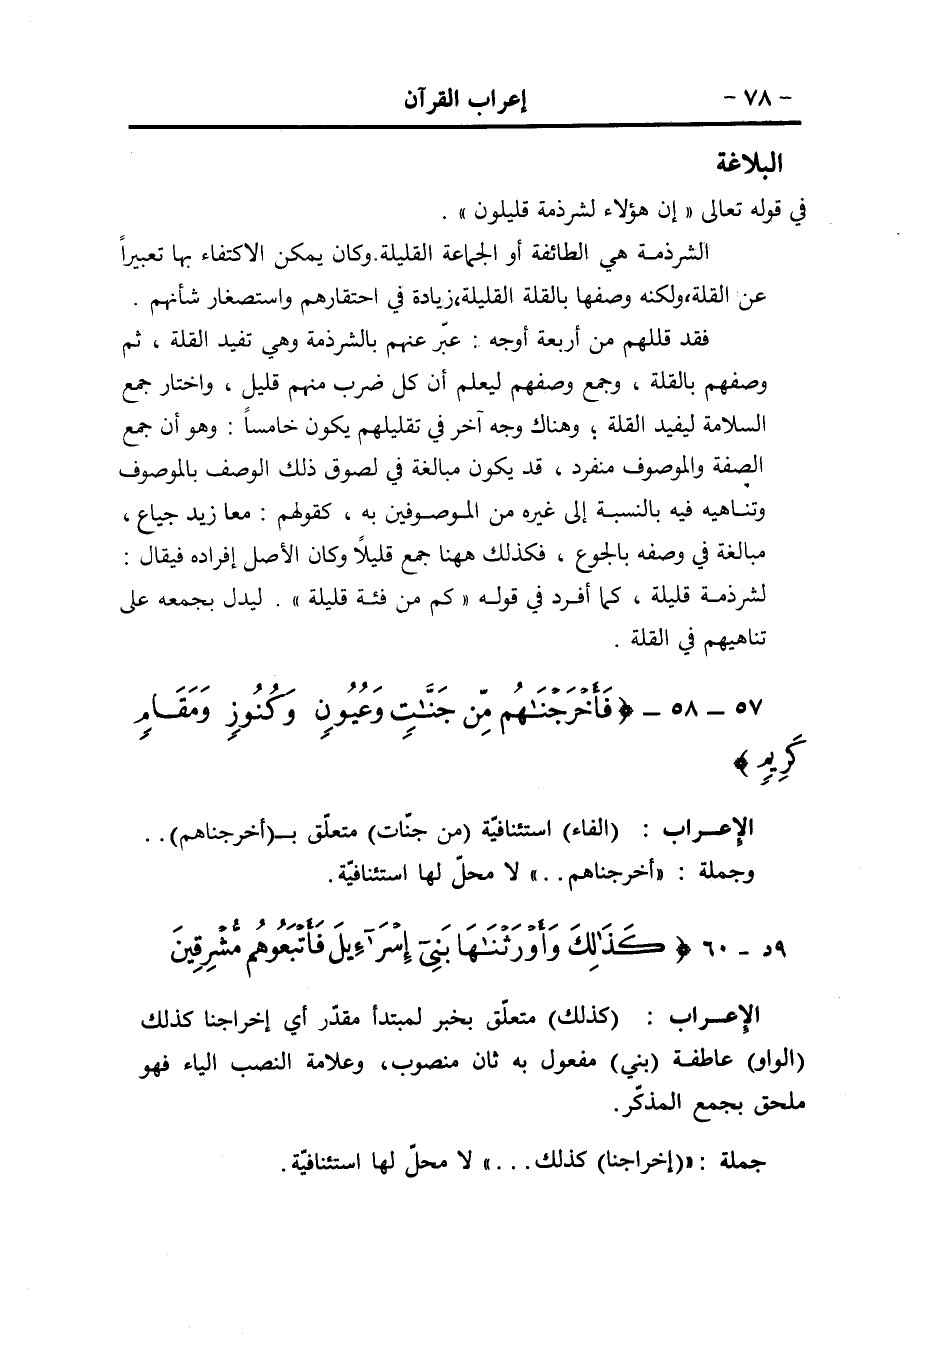 - ٧٨ - إعراب القرآن
البلاغة
في قوله تعالى « إن هؤلاء لشرذمة قليلون » .
الشرذمـة هي الطائفة أو الجماعة القليلة.وكان يمكن الاكتفاء بها تعبيراً
عن القلة،ولكنه وصفها بالقلة القليلة،زيادة في احتقارهم واستصغار شأنهم .
فقد قللهم من أربعة أوجه : عبّر عنهم بالشرذمة وهي تفيد القلة ، ثم
وصفهم بالقلة ، وجمع وصفهم ليعلم أن كل ضرب منهم قليل ، واختار جمع
السلامة ليفيد القلة ؛ وهناك وجه آخر في تقليلهم يكون خامساً : وهو أن جمع
الصفة والموصوف منفرد ، قد يكون مبالغة في لصوق ذلك الوصف بالموصوف
وتنـاهيه فيه بالنسبـة إلى غيره من المـوصـوفين به ، كقولهم : معا زيد جياع ،
مبالغة في وصفه بالجوع ، فكذلك ههنا جمع قليلاً وكان الأصل إفراده فيقال :
لشرذمـة قليلة ، كما أفـرد في قولـه « كم من فئـة قليلة » . ليدل بجمعه على
تناهيهم في القلة .
٥٧ - ٥٨ - ﴿ فَأَخْرَجْنَـٰهُم مِّن جَنَّـٰتٍ وَعُيُونٍ وَكُنُوزٍ وَمَقَـامٍ
كَرِيمٍ ﴾
الإعــراب : (الفاء) استئنافيّة (من جنّات) متعلّق بـ(أخرجناهم). .
وجملة : «أخرجناهم. .» لا محلّ لها استئنافيّة.
٥٩ - ٦٠ ﴿ كَذَٰلِكَ وَأَوْرَثْنَـٰهَا بَنِىٓ إِسْرَٰٓءِيلَ فَأَتْبَعُوهُم مُّشْرِقِينَ
الإعــراب : (كذلك) متعلّق بخبر لمبتدأ مقدّر أي إخراجنا كذلك
(الواو) عاطفـة (بني) مفعول به ثان منصوب، وعلامة النصب الياء فهو
ملحق بجمع المذكّر.
جملة : «(إخراجنا) كذلك. . .» لا محلّ لها استئنافيّة.